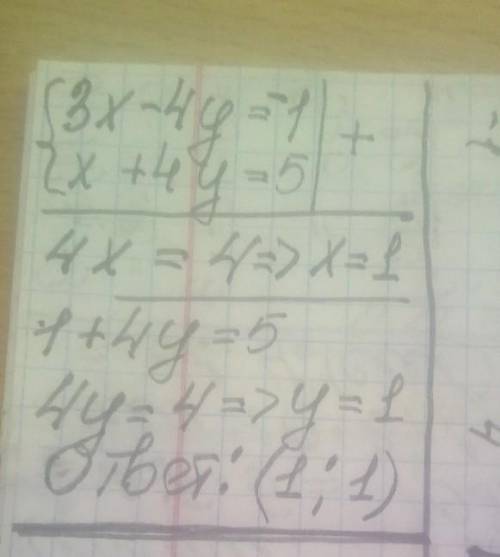 {3x-4y=-1 | +
{x+4y=5
4x=4=>x=1
1+4y=5
4y=4=>y=1
Ответ: (1;1)